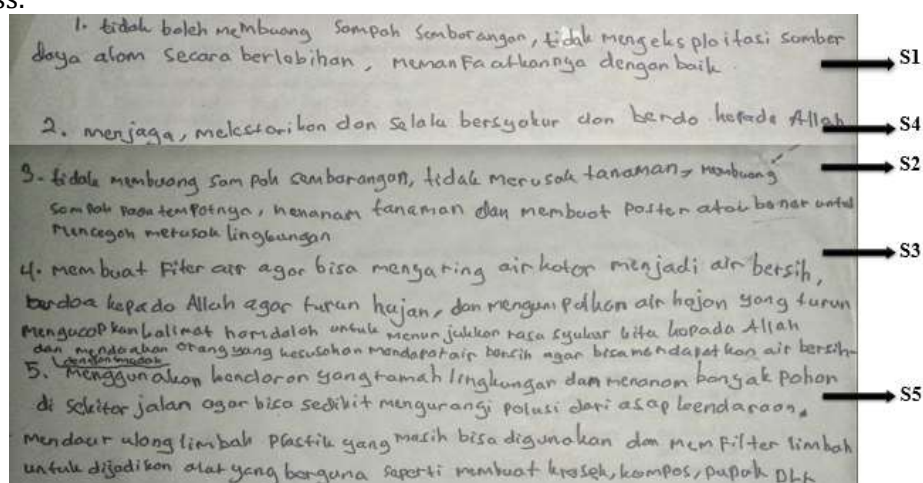 ss.
1. tidak boleh membuang sampah sembarangan, tidak mengeksploitasi sumber
daya alam secara berlebihan, memanfaatkannya dengan baik
S1
2. menjaga, melestarikan dan selalu bersyukur dan berdo kepada Allah
S4
3. tidak membuang sampah sembarangan, tidak merusak tanaman, membuang
S2
sampah pada tempatnya, menanam tanaman dan membuat poster atau baner untuk
mencegah merusak lingkungan
S3
4. membuat Filter air agar bisa menyaring air kotor menjadi air bersih,
berdoa kepada Allah agar turun hujan, dan mengumpulkan air hujan yang turun
mengucapkan kalimat hamdalah untuk menunjukkan rasa syukur kita kepada Allah
dan mendoakan orang yang kesusahan mendapat air bersih agar bisa mendapatkan air bersih
5. Menggunakan kendaraan yang ramah lingkungan dan menanam banyak pohon
di sekitar jalan agar bisa sedikit mengurangi polusi dari asap kendaraan,
S5
mendaur ulang limbah plastik yang masih bisa digunakan dan memfilter limbah
untuk dijadikan alat yang berguna seperti membuat kresek, kompos, pupuk DLL